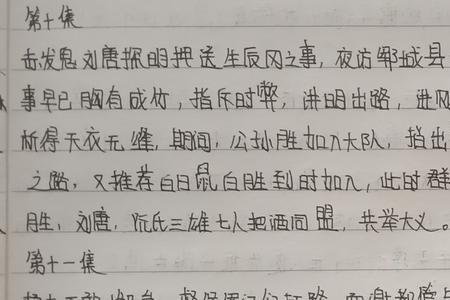 第十集
赤发鬼刘唐探明押送生辰冈之事，夜访郓城县
事早已胸有成竹，指斥时弊，讲明出路，进冈
析得天衣无缝，期间，公孙胜加入大队，指出
之路，又推荐白日鼠白胜到时加入，此时群
胜，刘唐，阮氏三雄七人把酒同盟，共举大义。
第十一集